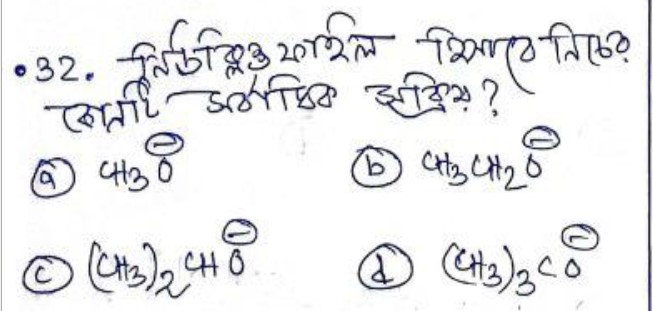 •32. নিউক্লিওফাইল হিসাবে নিচের
কোনটি সর্বাধিক সক্রিয়?
ⓐ CH₃O⊖ ⓑ CH₃CH₂O⊖
ⓒ (CH₃)₂CHO⊖ ⓓ (CH₃)₃CO⊖